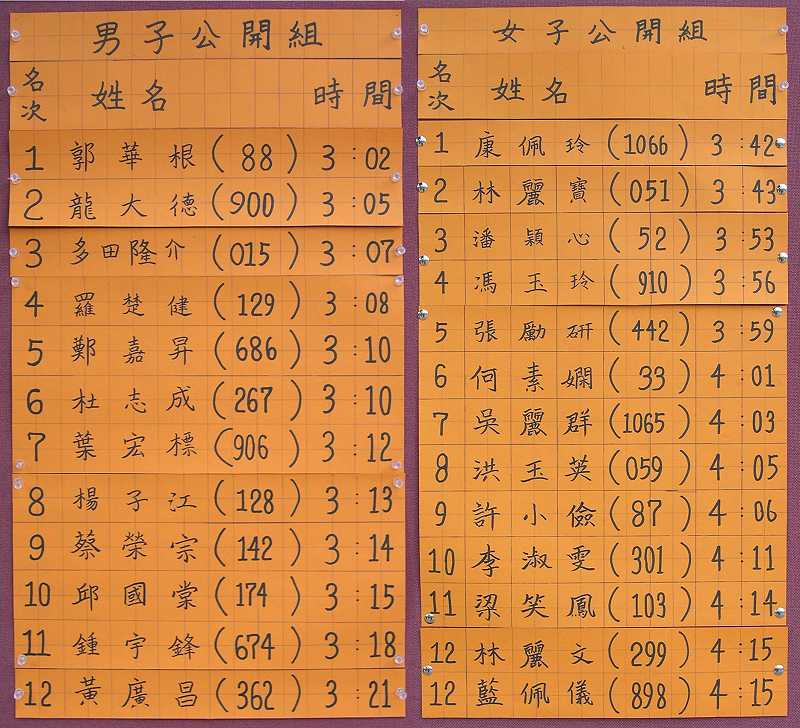 男子公開組
名次 姓名 時間
1 郭華根 (88) 3:02
2 龍大德 (900) 3:05
3 多田隆介 (015) 3:07
4 羅楚健 (129) 3:08
5 鄭嘉昇 (686) 3:10
6 杜志成 (267) 3:10
7 葉宏標 (906) 3:12
8 楊子江 (128) 3:13
9 蔡榮宗 (142) 3:14
10 邱國棠 (174) 3:15
11 鍾宇鋒 (674) 3:18
12 黃廣昌 (362) 3:21
女子公開組
名次 姓名 時間
1 康佩玲 (1066) 3:42
2 林麗寶 (051) 3:43
3 潘穎心 (52) 3:53
4 馮玉玲 (910) 3:56
5 張勵研 (442) 3:59
6 何素嫻 (33) 4:01
7 吳麗群 (1065) 4:03
8 洪玉英 (059) 4:05
9 許小儉 (87) 4:06
10 李淑雯 (301) 4:11
11 梁笑鳳 (103) 4:14
12 林麗文 (299) 4:15
12 藍佩儀 (898) 4:15